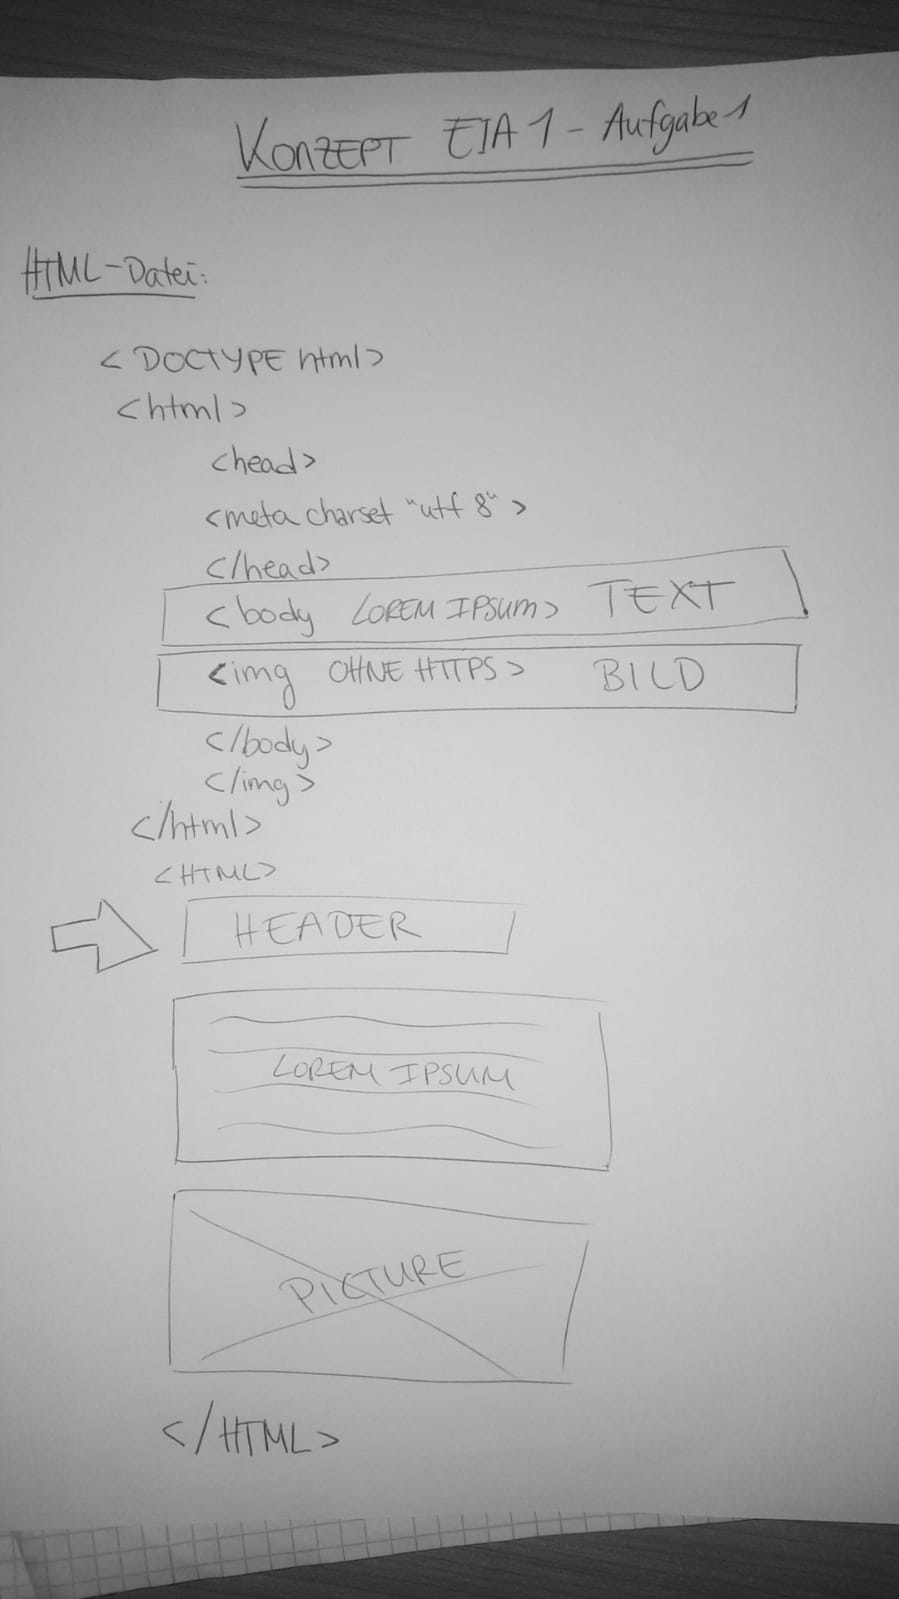 KONZEPT EIA1 - Aufgabe 1
HTML-Datei:
< DOCTYPE html>
<html>
<head>
<meta charset "utf 8">
</head>
<body LOREM IPSUM> TEXT
<img OHNE HTTPS> BILD
</body>
</img>
</html>
<HTML>
HEADER
LOREM IPSUM
PICTURE
</HTML>